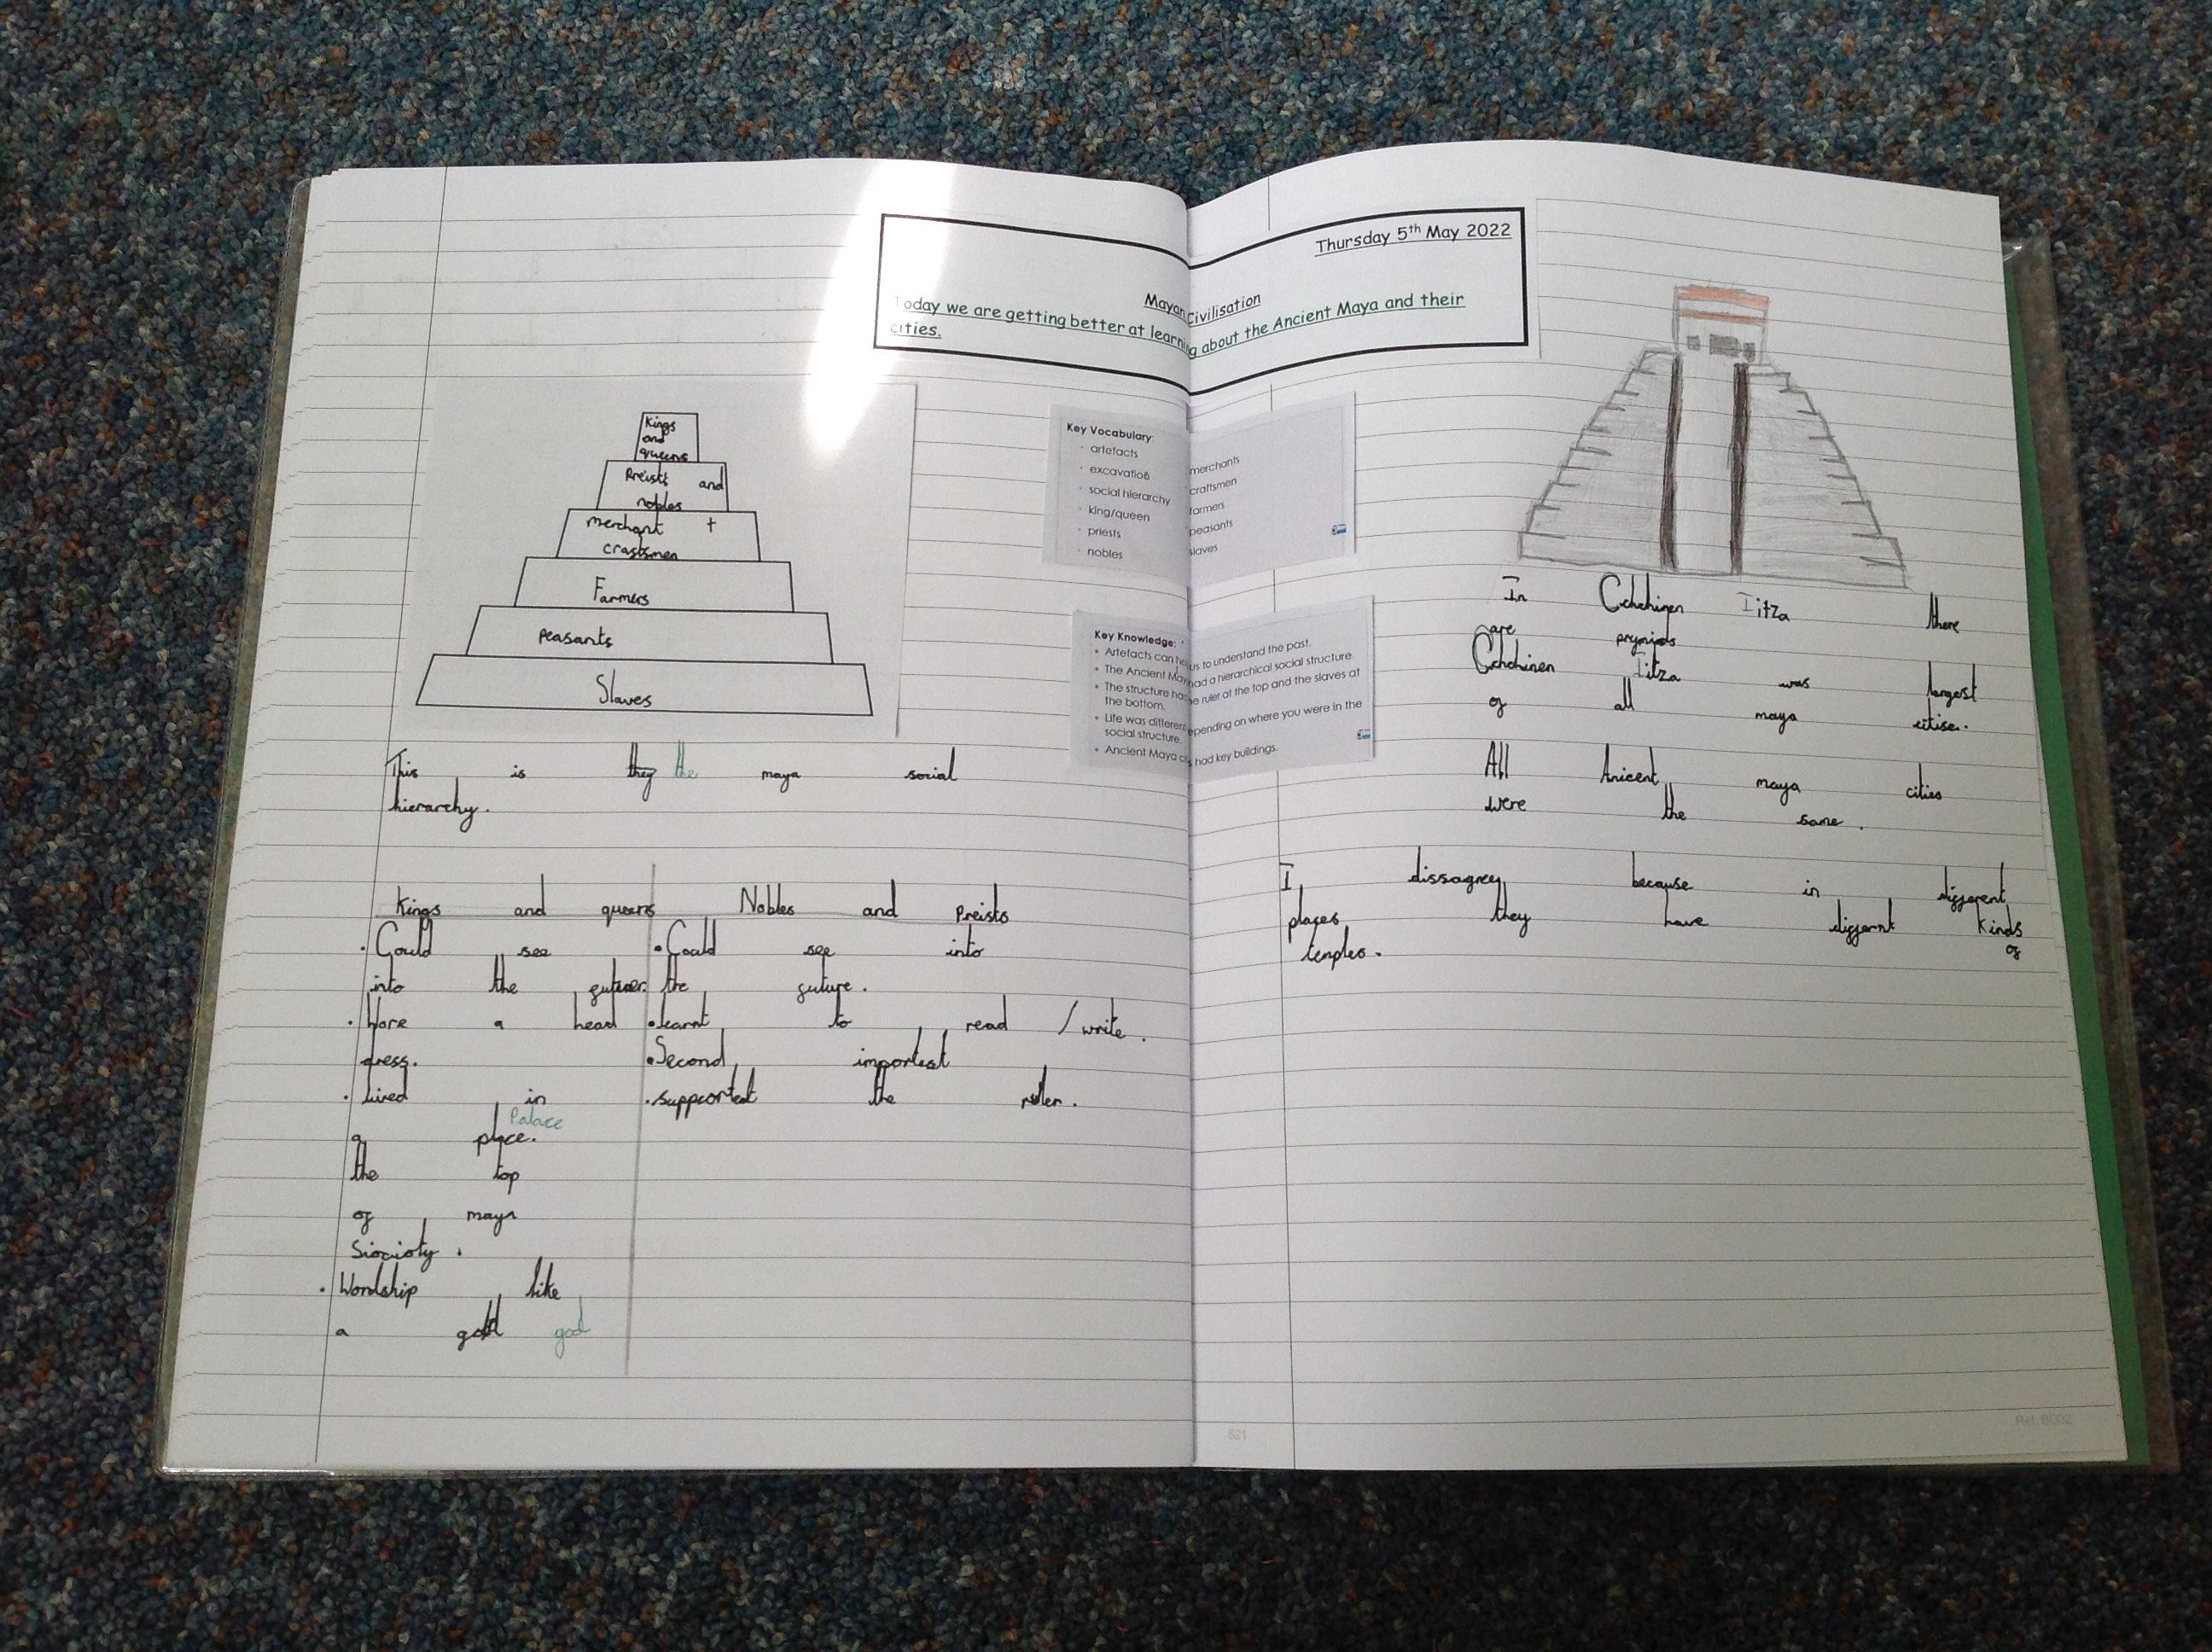 Thursday 5th May 2022
Mayan Civilisation
Today we are getting better at learning about the Ancient Maya and their
cities.
Kings
and
queens
Preists and
nobles
merchant +
crastsmen
Farmers
peasants
Slaves
Key Vocabulary
artefacts
excavation
social hierarchy
king/queen
priests
nobles
merchants
craftsmen
farmers
peasants
slaves
Key Knowledge:
Artefacts can help us to understand the past.
The Ancient Maya had a hierarchical social structure.
The structure had the ruler at the top and the slaves at
the bottom.
Life was different depending on where you were in the
social structure.
Ancient Maya cities had key buildings.
This is they the maya social
hierarchy.
Kings and queens
• Could see
into the
• Wore a head
dress.
• Lived in
Palace
a place.
the top
of maya
Siocioty.
• Wordship like
a gold god
Nobles and Preists
• Could see into
the future.
• learnt to read / write.
• Second importest
• supported the ruler.
In Cchchinen Iitza there
are prymids
Cchchinen Iitza was largest
of all maya citise.
All Anicent maya cities
were the same.
I dissagrey because in different
places they have differnt kinds
of
temples.
821
Ref: B002